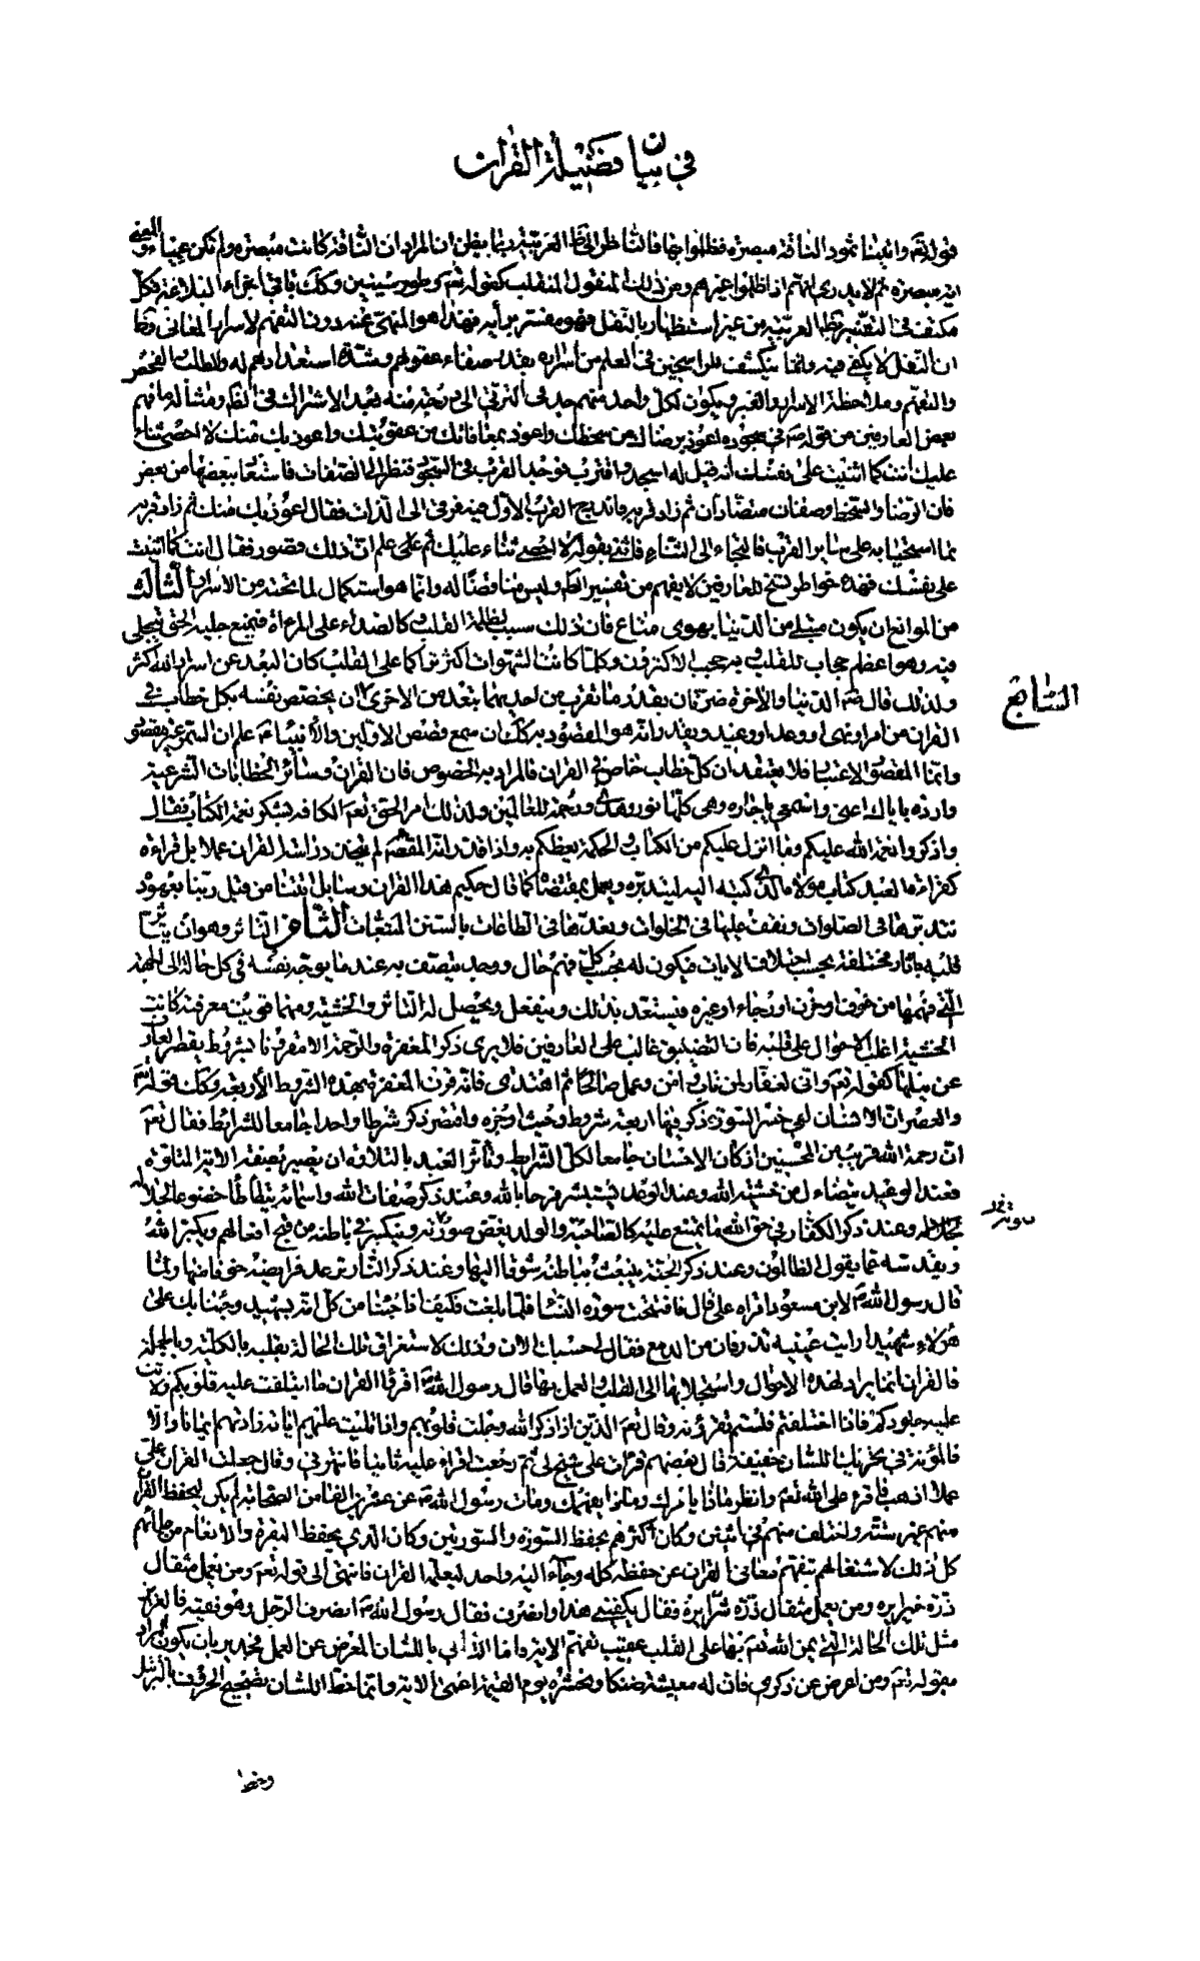 في بيان فضيلة القران
قوله تعم واتينا ثمود الناقة مبصرة فظلموا بها فالناظر الى ظ العربية ربما يظن ان المراد ان الناقة كانت مبصرة ولم تكن عمياء والمعنى
اية مبصرة ثم لا يدرى انهم اذا ظلموا غيرهم ومن ذلك المنقول المنقلب كقوله تعم وطور سينين وكك باقي اجزاء البلاغة فكل
مكتف في التفسير بظ العربية من غير استظهار بالنقل فهو مفسر برأيه فهذا هو المنهي عنه دون التفهم لاسرار المعاني وظ
ان النقل لا يكفي فيه وانما ينكشف للراسخين في العلم من اسراره بقدر صفاء عقولهم وشدة استعدادهم له وللطلب والفحص
والتفهم وملاحظة الاسرار والعبر ويكون لكل واحد منهم حد في الترقي الى درجة منه بعد الاشتراك في الظ ومثاله ما فهم
بعض العارفين من قوله ص في سجوده اعوذ برضاك من سخطك واعوذ بمعافاتك من عقوبتك واعوذ بك منك لا احصي ثناء
عليك انت كما اثنيت على نفسك انه قيل له اسجد واقترب فوجد القرب في السجود فنظر الى الصفات فاستعاذ ببعضها من بعض
فان الرضا والسخط وصفان متضادان ثم زاد قربه فاندرج القرب الاول فيه فرقى الى الذات فقال اعوذ بك منك ثم زاد قربه
بما استحيا به على بساط القرب فالتجاء الى الثناء فاثنى بقوله لا احصي ثناء عليك ثم علم ان ذلك قصور فقال انت كما اثنيت
على نفسك فهذه خواطر تسنح للعارفين لا يفهم من تفسير الظ وليس مناقضا له وانما هو استكمال لما تحته من الاسرار الثالث
من الموانع ان يكون مبتلى من الدنيا بهوى متاع فان ذلك سبب لظلمة القلب وكالصداء على المرءاة فيمنع جلية الحق ان يتجلى
فيه وهو اعظم حجاب للقلب وبه حجب الاكثرون وكلما كانت الشهوات اكثر تراكما على القلب كان البعد عن اسرار الله اكثر
ولذلك قال ص الدنيا والاخرة ضرتان بقدر ما تقرب من احديهما تبعد من الاخرى ان يخصص نفسه بكل خطاب في
السابع
القران من امر او نهى او وعد او وعيد ويقدر انه هو المقصود به كك ان سمع قصص الاولين والانبياء عم علم ان السمر غير مقصود
وانما المقصود الاعتبار فلا يعتقد ان كل خطاب خاص في القران فالمراد به الخصوص فان القران وسائر الخطابات الشرعية
واردة باياك اعنى واسمعى يا جارة وهى كلها نور وهدى ورحمة للعالمين ولذلك امر الحق تعم الكافة بشكر نعمة الكتاب فقال
واذكروا نعمة الله عليكم وما انزل عليكم من الكتاب والحكمة يعظكم به واذا قدر انه المقصود لم يتخذ دراسة القران عملا بل قراءة
كقراءة العبد كتاب مولاه الذى كتبه اليه ليتدبره ويعمل بمقتضاه كما قال حكيم هذا القران رسايل اتتنا من قبل ربنا بعهوده
نتدبرها في الصلوات ونقف عليها في الخلوات ونعدها في الطاعات بالسنن المتبعات الثامن التاثر وهو ان يتاثر
قلبه باثار مختلفة بحسب اختلاف الايات فيكون له بحسب كل فهم حال ووجد يتصف به عند ما يوجه نفسه في كل حالة الى الجهة
التي فهمها من خوف او حزن او رجاء او غيره فيستعد بذلك وينفعل ويحصل له التاثر والخشية ومهما قويت معرفته كانت
الخشية اغلب الاحوال على قلبه فان التضييق غالب على العارفين فلا يرى ذكر المغفرة والرحمة الا مقرونا بشروط يقصر العارف
عن نيلها كقوله تعم وانى لغفار لمن تاب وامن وعمل صالحا ثم اهتدى فانه قرن المغفرة بهذه الشروط الاربعة وكك قوله تعم
والعصر ان الانسان لفى خسر السورة ذكر فيها اربعة شروط وحيث اوجزه واقتصر ذكر شرطا واحدا جامعا للشرائط فقال تعم
ان رحمة الله قريب من المحسنين اذ كان الاحسان جامعا لكل الشرايط وتأثر العبد بالتلاوة ان يصير بصفة الاية المتلوة
فعند الوعيد يتضاءل من خشية الله وعند الوعد يستبشر فرحا بالله وعند ذكر صفات الله واسمائه يتطاطأ خضوعا لجلاله
وعند ذكر الكفار في حق الله ما يمتنع عليه كالصاحبة والولد يغض صوته وينكسر في باطنه من قبح افعالهم ويكبر الله
ويقدسه عما يقول الظالمون وعند ذكر الجنة ينبعث بباطنه شوقا اليها وعند ذكر النار ترعد فرايصه خوفا منها ولما
قال رسول الله ص لابن مسعود اقراء على قال فافتتحت سورة النساء فلما بلغت فكيف اذا جئنا من كل امة بشهيد وجئنا بك على
هؤلاء شهيدا رايت عينيه تذرفان من الدمع فقال لى حسبك الان وذلك لاستغراق تلك الحالة بقلبه بالكلية وبالجملة
فالقران انما يراد لهذه الاحوال واستجلابها الى القلب والعمل بها قال رسول الله ص اقرؤا القران ما ايتلفت عليه قلوبكم ولانت
عليه جلودكم فاذا اختلفتم فلستم تقرؤنه وقال تعم الذين اذا ذكر الله وجلت قلوبهم واذا تليت عليهم اياته زادتهم ايمانا والا
فالمؤنة في تحريك اللسان خفيفة قال بعضهم قرات على شيخ لى ثم رجعت اقراء عليه ثانيا فانتهرني وقال جعلت القران على
عملا اذهب فاقرء على الله تعم وانظر ماذا يامرك وماذا يفهمك ومات رسول الله ص عن عشرين الفا من الصحابة لم يكن يحفظ القران
منهم غير ستة واختلف منهم في اثنين وكان اكثرهم يحفظ السورة والسورتين وكان الذى يحفظ البقرة والانعام من علمائهم
كل ذلك لاشتغالهم بتفهم معانى القران عن حفظه كله وجاء اليه واحد ليعلمه القران فانتهى الى قوله تعم ومن يعمل مثقال
ذرة خيرا يره ومن يعمل مثقال ذرة شرا يره فقال يكفينى هذا وانصرف فقال رسول الله ص انصرف الرجل وهو فقيه فالعزيز
مثل تلك الحالة التي يمن الله تعم بها على القلب عقيب تفهم الاية واما التالي باللسان المعرض عن العمل فجدير بان يكون المراد
بقوله تعم ومن اعرض عن ذكرى فان له معيشة ضنكا ونحشره يوم القيمة اعمى الاية وانما حظ اللسان تصحيح الحروف بالترتيل
وحظ